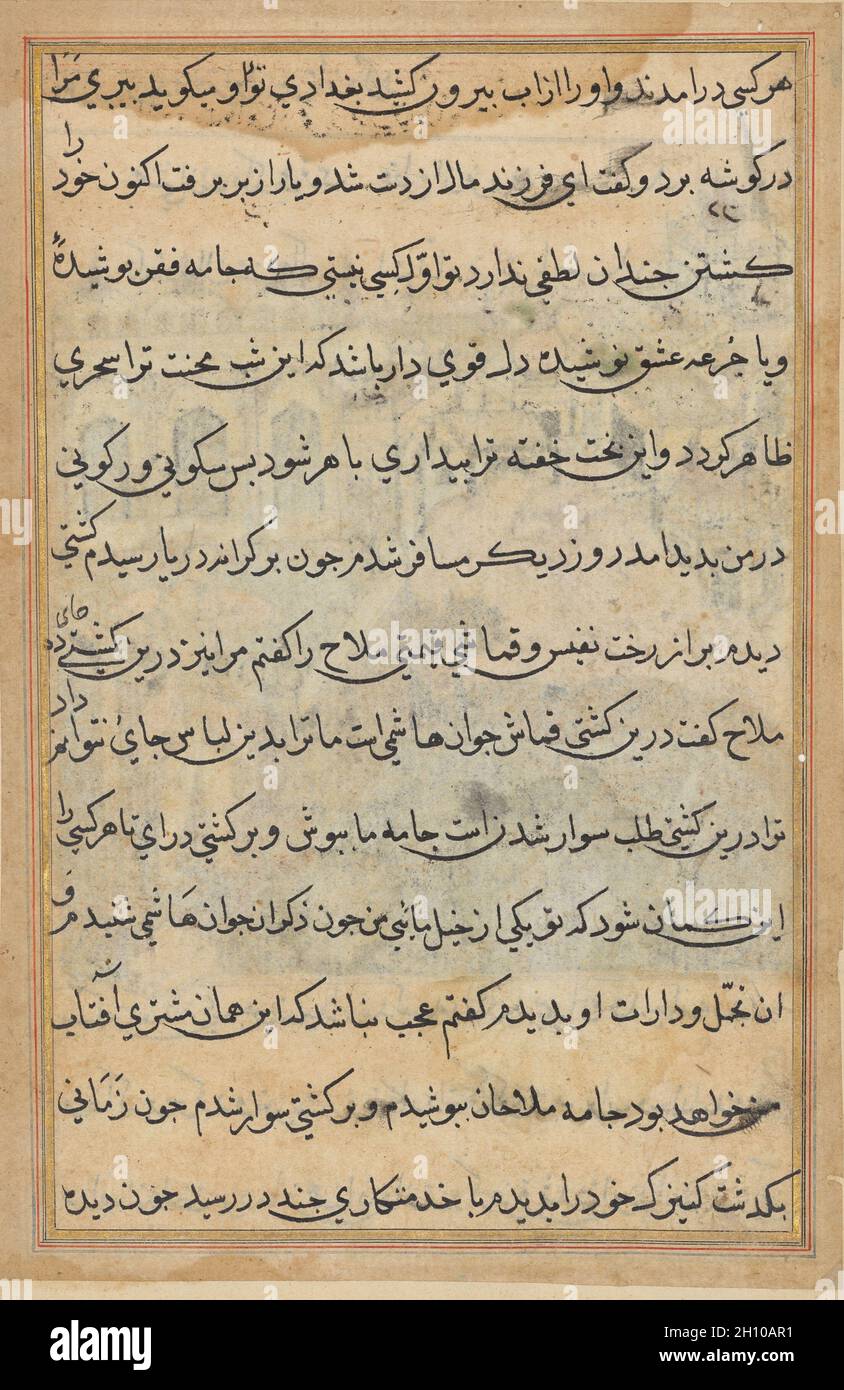 هر کسي درامدند واورا ازاب بيرون کشيد بغدادي تواو ميکويد بيري مرا
در کوشه برد و کفت اي فرزند مال از دست شد ويار از بر برفت اکنون خود را
کشتن جندان لطفي ندارد تو اول کسي نيستي که جامه فقر بوشيدهٔ
ويا جرعه عشق نوشيده دل قوي دار باشد که اين شب محنت ترا سحري
ظاهر کردد واين بخت خفته ترا بيداري باهر شود بس سکوني ورکوني
در من بديد امد روز ديکر مسافر شدم جون بر کرانه دريا رسيدم کشتي
ديدم براز رخت نفيس و قماشي قيمتي ملاح را کفتم مرا نيز درين کشتي جاي ده
ملاح کفت درين کشتي قماش جوان هاشمي است ما ترا بدين لباس جائ نتوانم داد
ترا درين کشتي طلب سوار شدن است جامه ما ببوش و بر کشتي دراي تا هر کسي را
اين کمان شود که تو يکي از خيل مايي من جون ذکر ان جوان هاشمي شنيدم و
ان تجمل و دارات او بديدم کفتم عجب نباشد که اين همان مشتري آفتاب
من خواهد بود جامه ملاحان ببوشيدم و بر کشتي سوار شدم جون زماني
بکدشت کنيزک خود را بديدم با خدمتکاري جند در رسيد جون ديده
alamy
alamy
Image ID: 2H10AR1
www.alamy.com